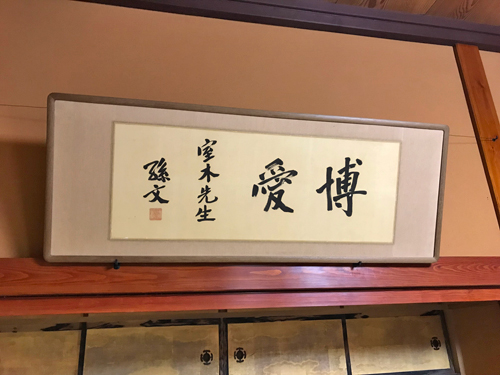 博愛
室木先生
孫文